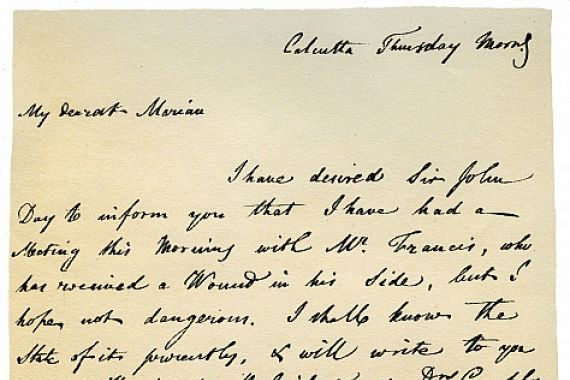 Calcutta Thursday Morng
My dearest Marian
I have desired Sir John
Day to inform you that I have had a
Meeting this Morning with Mr. Francis, who
has received a Wound in his Side, but I
hope not dangerous. I shall know the
State of it presently, & will write to you